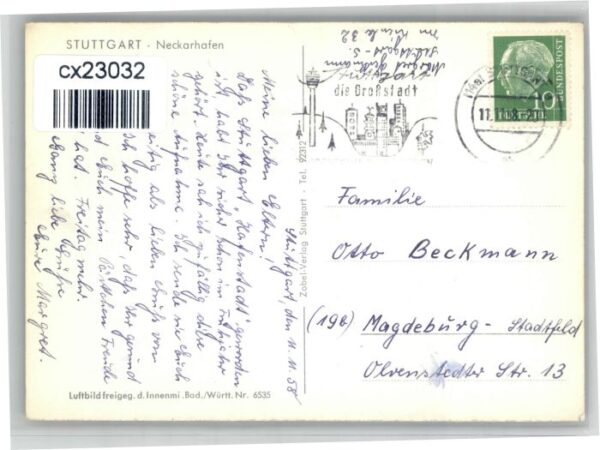 STUTTGART · Neckarhafen
cx23032
Meine lieben Eltern!
Stuttgart, den 11.11.58
Daß Stuttgart Hafenstadt geworden
ist, habt Ihr sicher schon im
gehört. Heute sah ich zufällig diese
schöne Aufnahme. Ich sende sie Euch
als lieben Gruß von
ich hoffe sehr, daß Ihr gesund
Euch mein Päckchen Freude
hat. Freitag mehr.
liebe Grüße
Eure Margret.
Luftbild freigeg. d. Innenmi .Bad./Württ. Nr. 6535
Zobel-Verlag Stuttgart · Tel. 92312
Margret
Stuttgart-S.
Im 32
die Großstadt
11.11.58
DEUTSCHE BUNDESPOST
10
Familie
Otto Beckmann
(19b) Magdeburg-Stadtfeld
Olvenstedter Str. 13